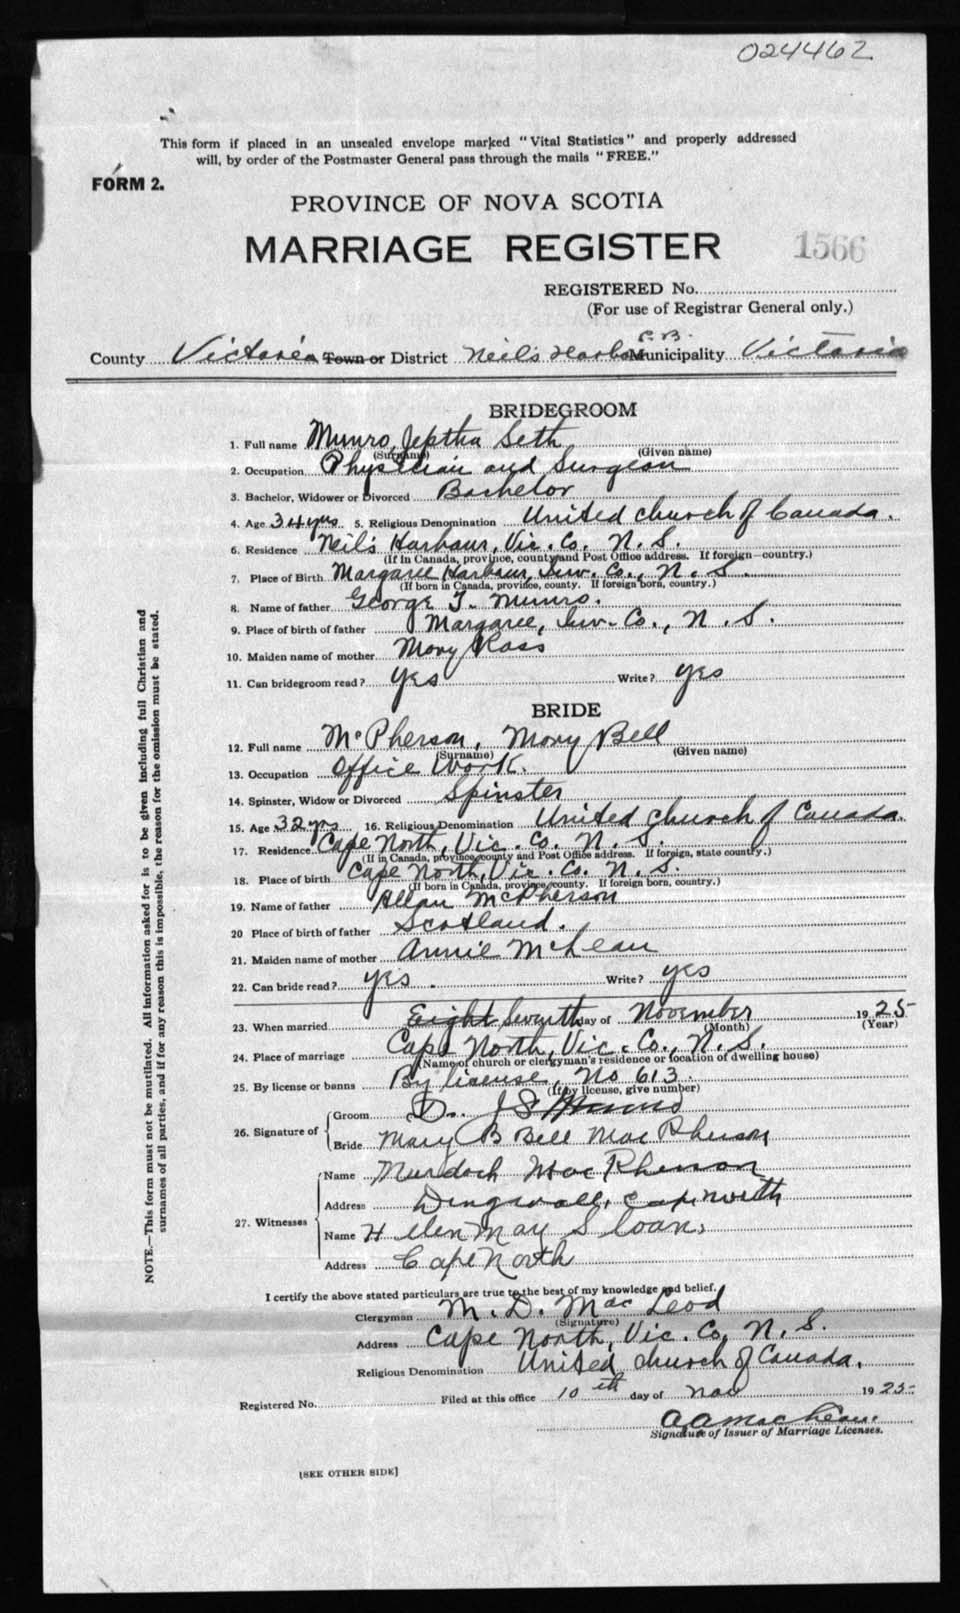 024462
This form if placed in an unsealed envelope marked "Vital Statistics" and properly addressed
will, by order of the Postmaster General pass through the mails "FREE."
FORM 2.
PROVINCE OF NOVA SCOTIA
MARRIAGE REGISTER 1566
REGISTERED No.
(For use of Registrar General only.)
C.B.
County Victoria Town or District Neil's Harbour Municipality Victoria
BRIDEGROOM
1. Full name Munro, Jeptha Seth
(Surname) (Given name)
2. Occupation Physician and Surgeon
3. Bachelor, Widower or Divorced Bachelor
4. Age 34 yrs. 5. Religious Denomination United Church of Canada.
6. Residence Neil's Harbour, Vic. Co. N. S.
(If in Canada, province, county and Post Office address. If foreign—country.)
7. Place of Birth Margaree Harbour, Inv. Co., N. S.
(If born in Canada, province, county. If foreign born, country.)
8. Name of father George T. Munro.
9. Place of birth of father Margaree, Inv. Co., N. S.
10. Maiden name of mother Mary Ross
11. Can bridegroom read? Yes Write? Yes
BRIDE
12. Full name McPherson, Mary Bell
(Surname) (Given name)
13. Occupation Office Work.
14. Spinster, Widow or Divorced Spinster
15. Age 32 yrs 16. Religious Denomination United Church of Canada.
17. Residence Cape North, Vic. Co. N. S.
(If in Canada, province, county and Post Office address. If foreign, state country.)
18. Place of birth Cape North, Vic. Co. N. S.
(If born in Canada, province, county. If foreign born, country.)
19. Name of father Allan McPherson
20 Place of birth of father Scotland.
21. Maiden name of mother Annie McLean
22. Can bride read? Yes. Write? Yes
23. When married Eight Seventh day of November 1925
(Month) (Year)
24. Place of marriage Cape North, Vic. Co., N. S.
(Name of church or clergyman's residence or location of dwelling house)
25. By license or banns By license, No 613.
(If by license, give number)
26. Signature of
Groom Dr. J S Munro
Bride Mary B Bell MacPherson
27. Witnesses
Name Murdoch MacPherson
Address Dingwall, Cape North
Name Helen May Sloan,
Address Cape North
I certify the above stated particulars are true to the best of my knowledge and belief.
Clergyman M. D. MacLeod
(Signature)
Address Cape North, Vic. Co, N. S.
Religious Denomination United Church of Canada.
Registered No. Filed at this office 10th day of Nov 1925
A A MacLean.
Signature of Issuer of Marriage Licenses.
[SEE OTHER SIDE]
NOTE.—This form must not be mutilated. All information asked for is to be given including full Christian and
surnames of all parties, and if for any reason this is impossible, the reason for the omission must be stated.